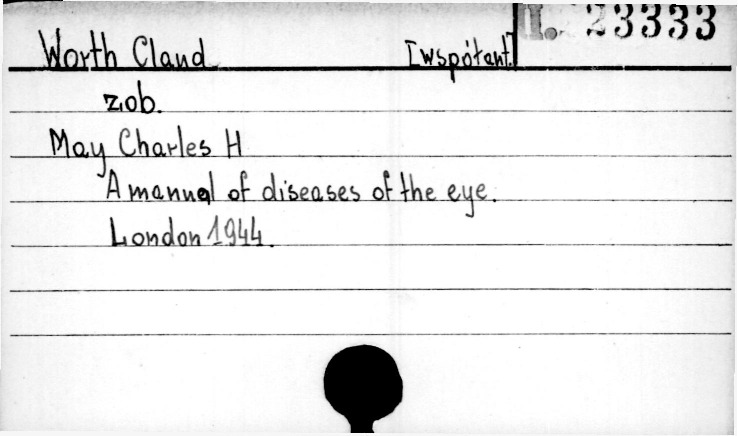 II. 23333
Worth Claud [współaut.]
zob.
May Charles H
A manual of diseases of the eye.
London 1944.